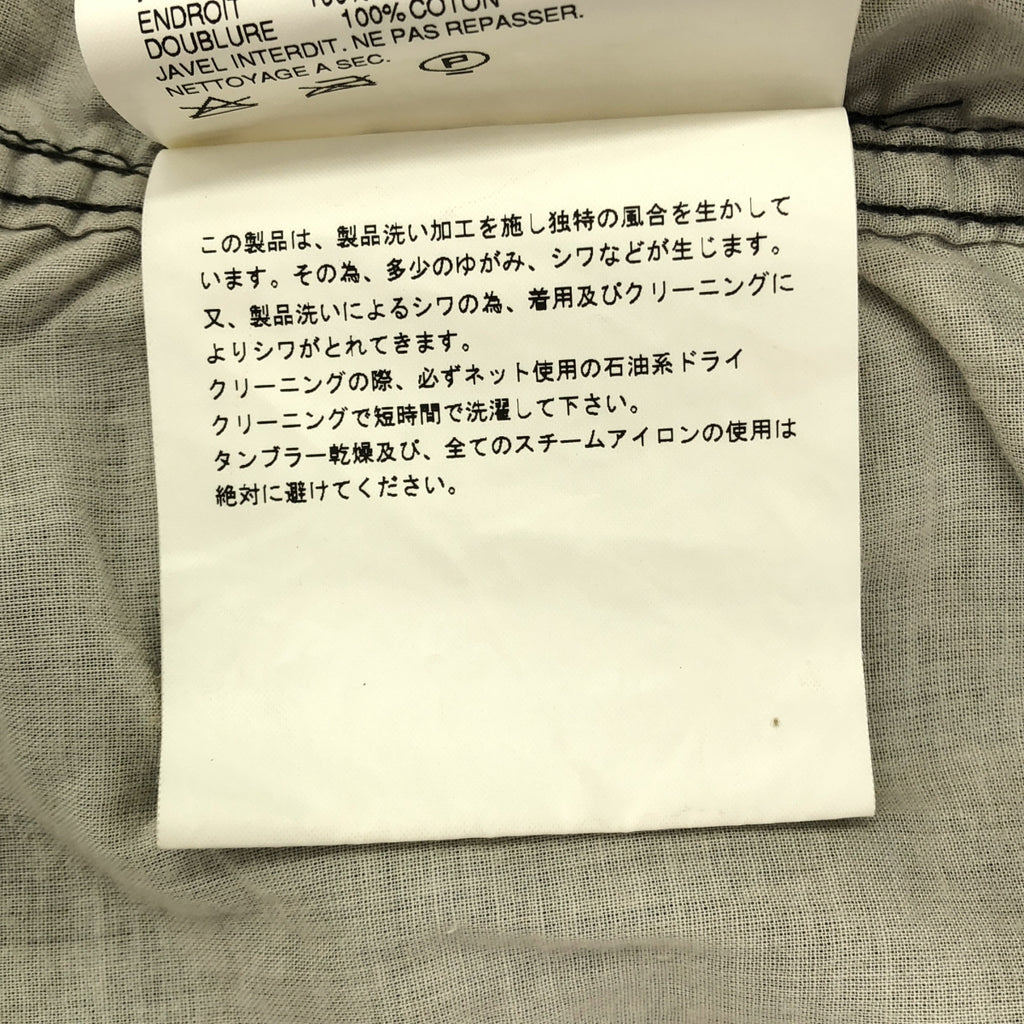 ENDROIT
DOUBLURE 100% COTON
JAVEL INTERDIT. NE PAS REPASSER.
NETTOYAGE A SEC.
P
この製品は、製品洗い加工を施し独特の風合を生かして
います。その為、多少のゆがみ、シワなどが生じます。
又、製品洗いによるシワの為、着用及びクリーニングに
よりシワがとれてきます。
クリーニングの際、必ずネット使用の石油系ドライ
クリーニングで短時間で洗濯して下さい。
タンブラー乾燥及び、全てのスチームアイロンの使用は
絶対に避けてください。